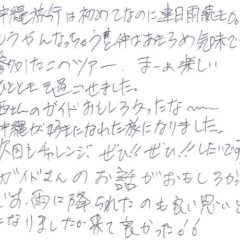 沖縄旅行は初めてなのに連日雨
もうやんなっちゃう
参加したこのツアー、まーぁ楽しい
ひとときを過ごせました。
さんのガイドおもしろかったな〜
沖縄が好きになれた旅になりました。
次回もチャレンジ、ぜひ!!ぜひ!!したいです
ガイドさんのお話がおもしろかっ
雨に降られたのも良い思い
になりましたが来て良かった!!